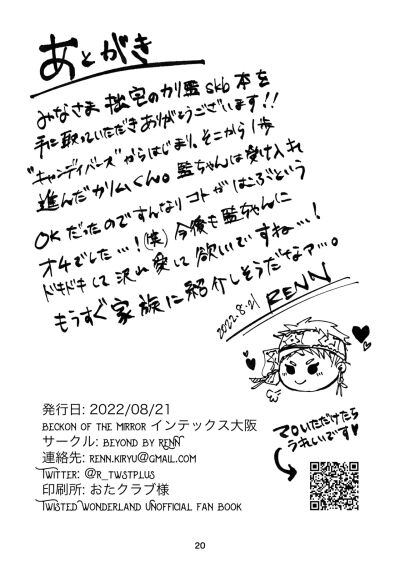 あとがき
みなさま 拙宅のカリ監skb本を
手に取っていただきありがとうございます!!
"キャンディバース"からはじまり。そこから1歩
進んだカリムくん。監ちゃんは受け入れ
OKだったのですんなりコトがはこぶという
オチでした…!(笑)今後も監ちゃんに
ドキドキして沢山愛して欲しいですね…!
もうすぐ家族に紹介しそうだなァ…。
2022.8.21 RENN
発行日: 2022/08/21
Beckon of the Mirror インテックス大阪
サークル: Beyond by Renn
連絡先: renn.kiryu@gmail.com
Twitter: @r_twstplus
印刷所: おたクラブ様
Twisted Wonderland Unofficial Fan Book
いただけたら
うれしいです
20